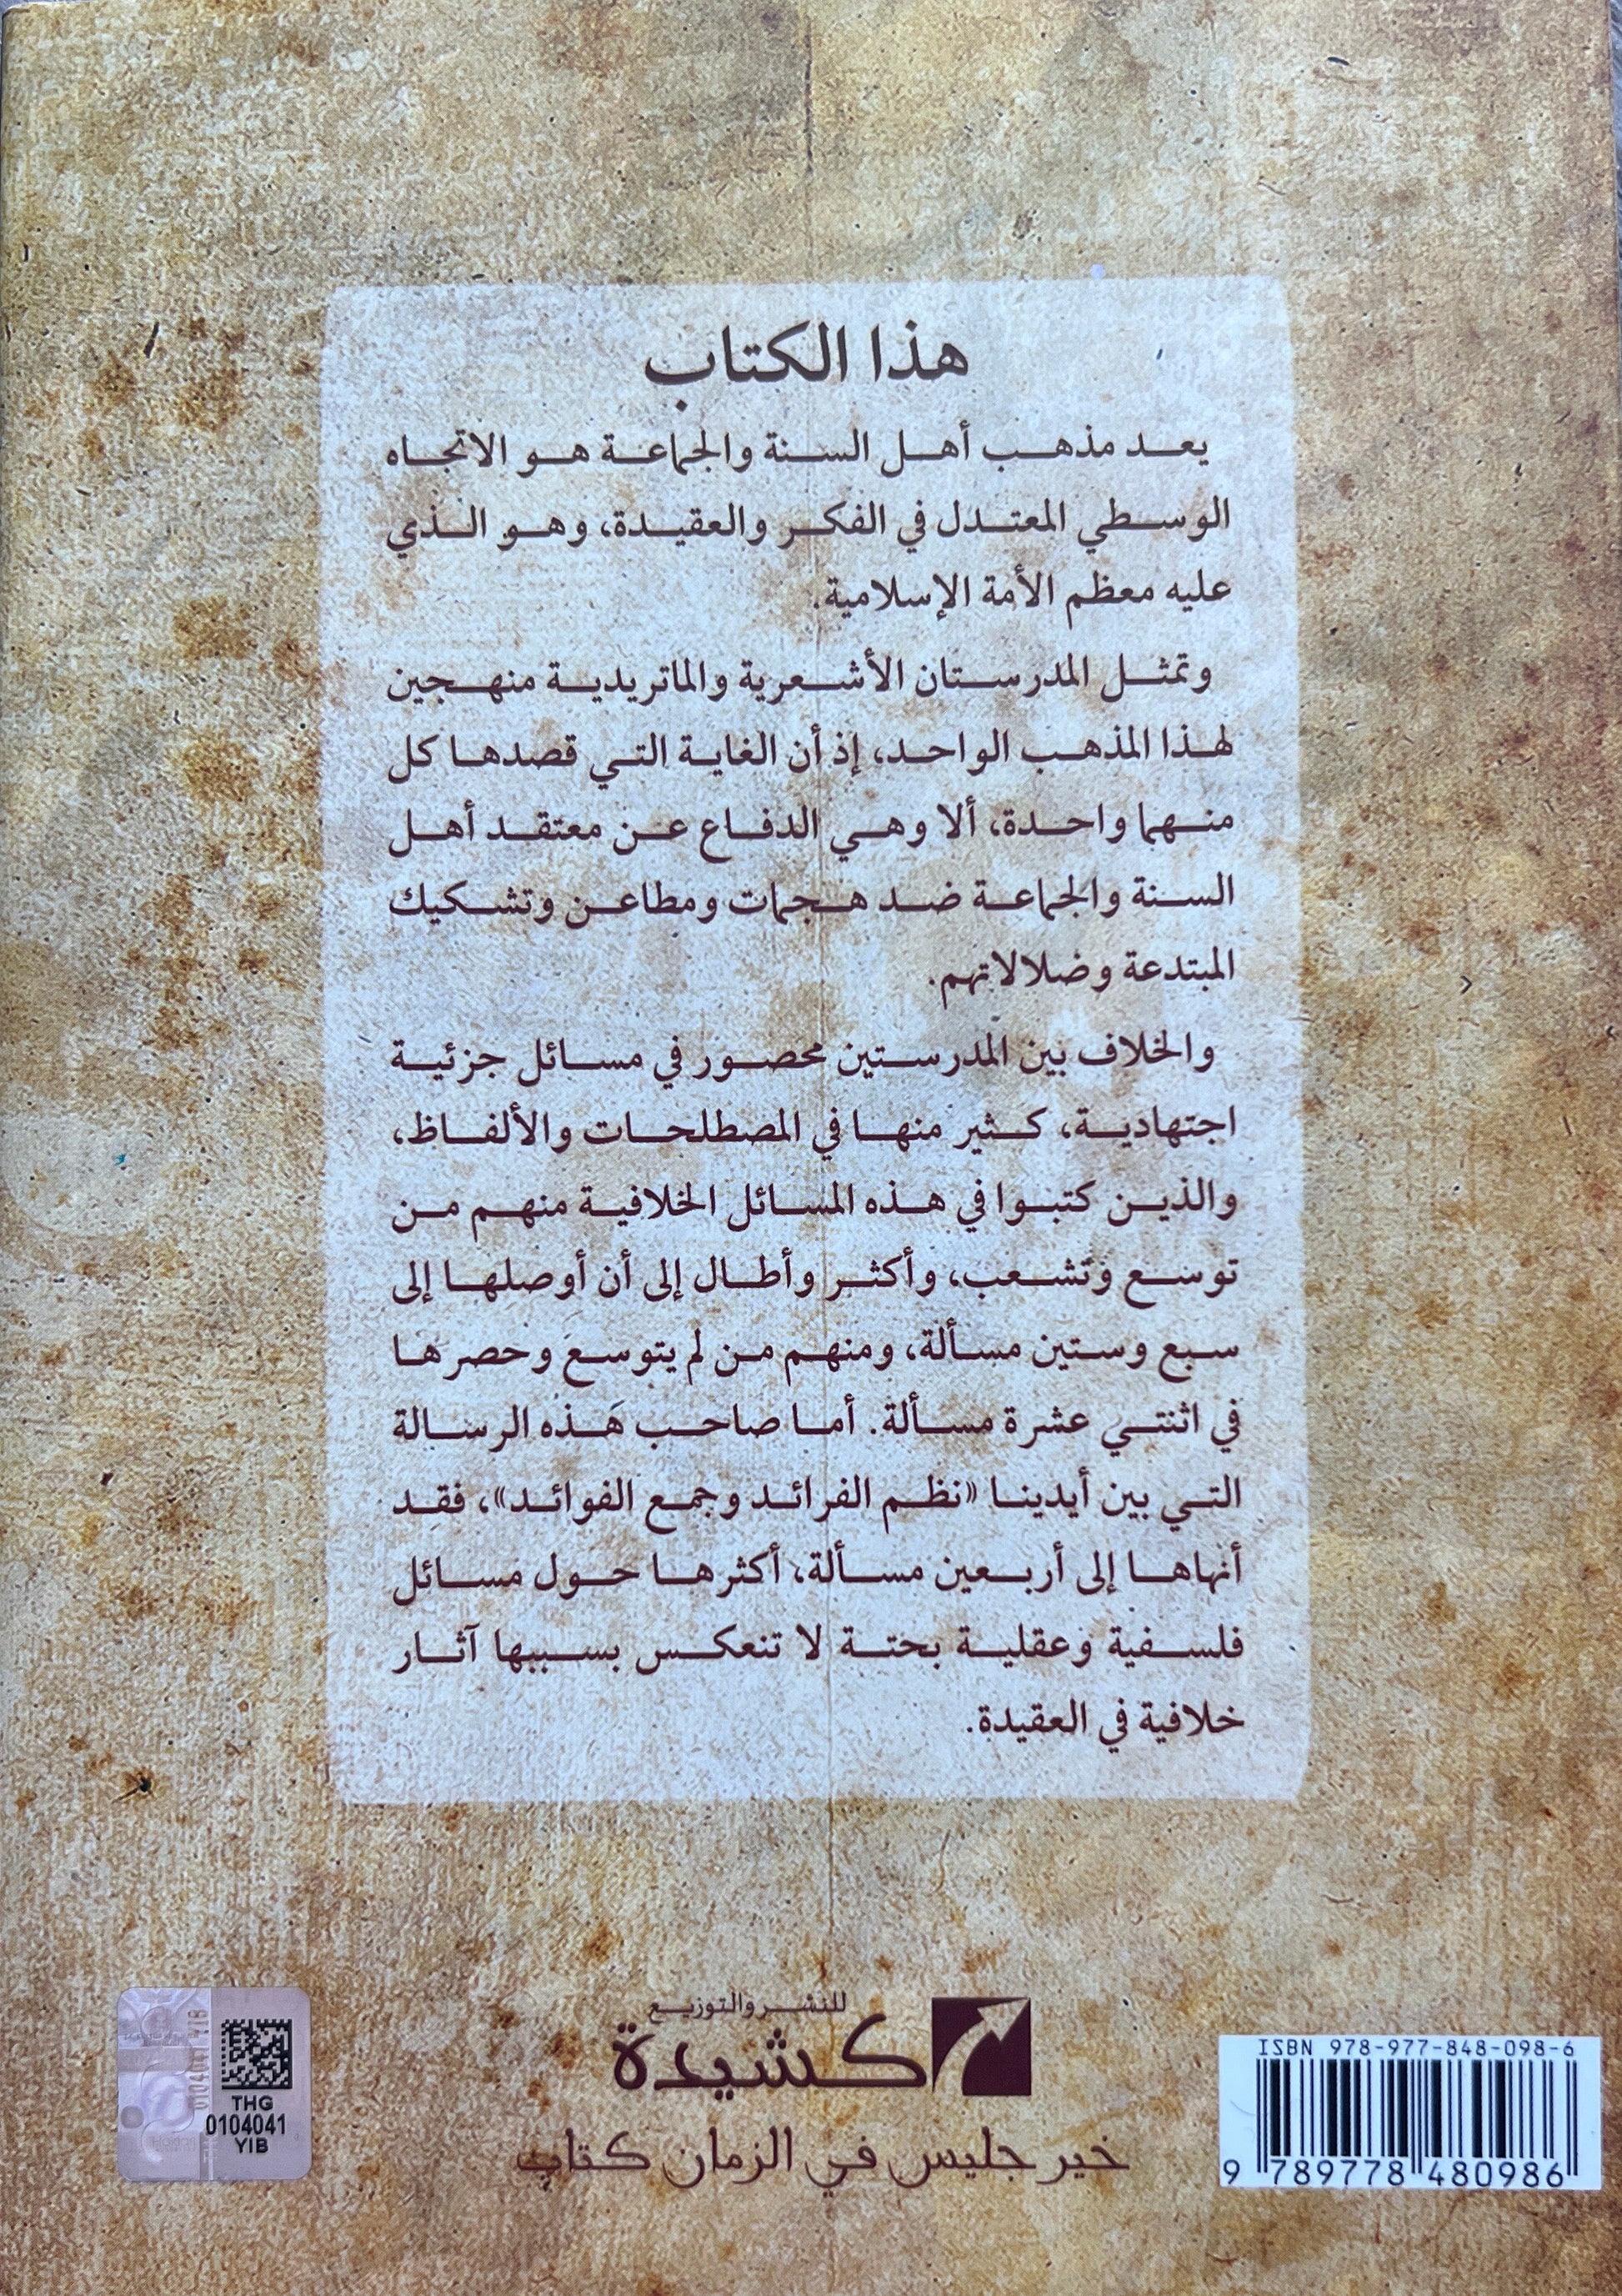 هذا الكتاب
يعد مذهب أهل السنة والجماعة هو الاتجاه
الوسطي المعتدل في الفكر والعقيدة، وهو الذي
عليه معظم الأمة الإسلامية.
وتمثل المدرستان الأشعرية والماتريدية منهجين
لهذا المذهب الواحد، إذ أن الغاية التي قصدها كل
منهما واحدة، ألا وهي الدفاع عن معتقد أهل
السنة والجماعة ضد هجمات ومطاعن وتشكيك
المبتدعة وضلالاتهم.
والخلاف بين المدرستين محصور في مسائل جزئية
اجتهادية، كثير منها في المصطلحات والألفاظ،
والذين كتبوا في هذه المسائل الخلافية منهم من
توسع وتشعب، وأكثر وأطال إلى أن أوصلها إلى
سبع وستين مسألة، ومنهم من لم يتوسع وحصرها
في اثنتي عشرة مسألة. أما صاحب هَذه الرسالة
التي بين أيدينا «نظم الفرائد وجمع الفوائد»، فقد
أنهاها إلى أربعين مسألة، أكثرها حول مسائل
فلسفية وعقلية بحتة لا تنعكس بسببها آثار
خلافية في العقيدة.
للنشر والتوزيع
كشيدة
خير جليس في الزمان كتاب
ISBN 978-977-848-098-6
9 789778 480986
THG
0104041
YIB